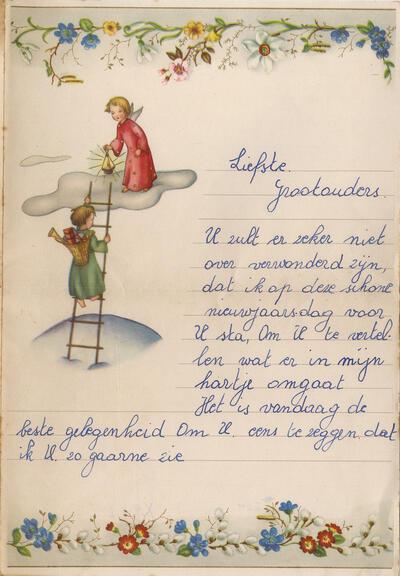 Liefste
Grootouders.
U zult er zeker niet
over verwonderd zijn,
dat ik op deze schone
nieuwjaarsdag voor
U sta, Om U te vertel-
len wat er in mijn
hartje omgaat
Het is vandaag de
beste gelegenheid Om U. eens te zeggen, dat
ik U. zo gaarne zie